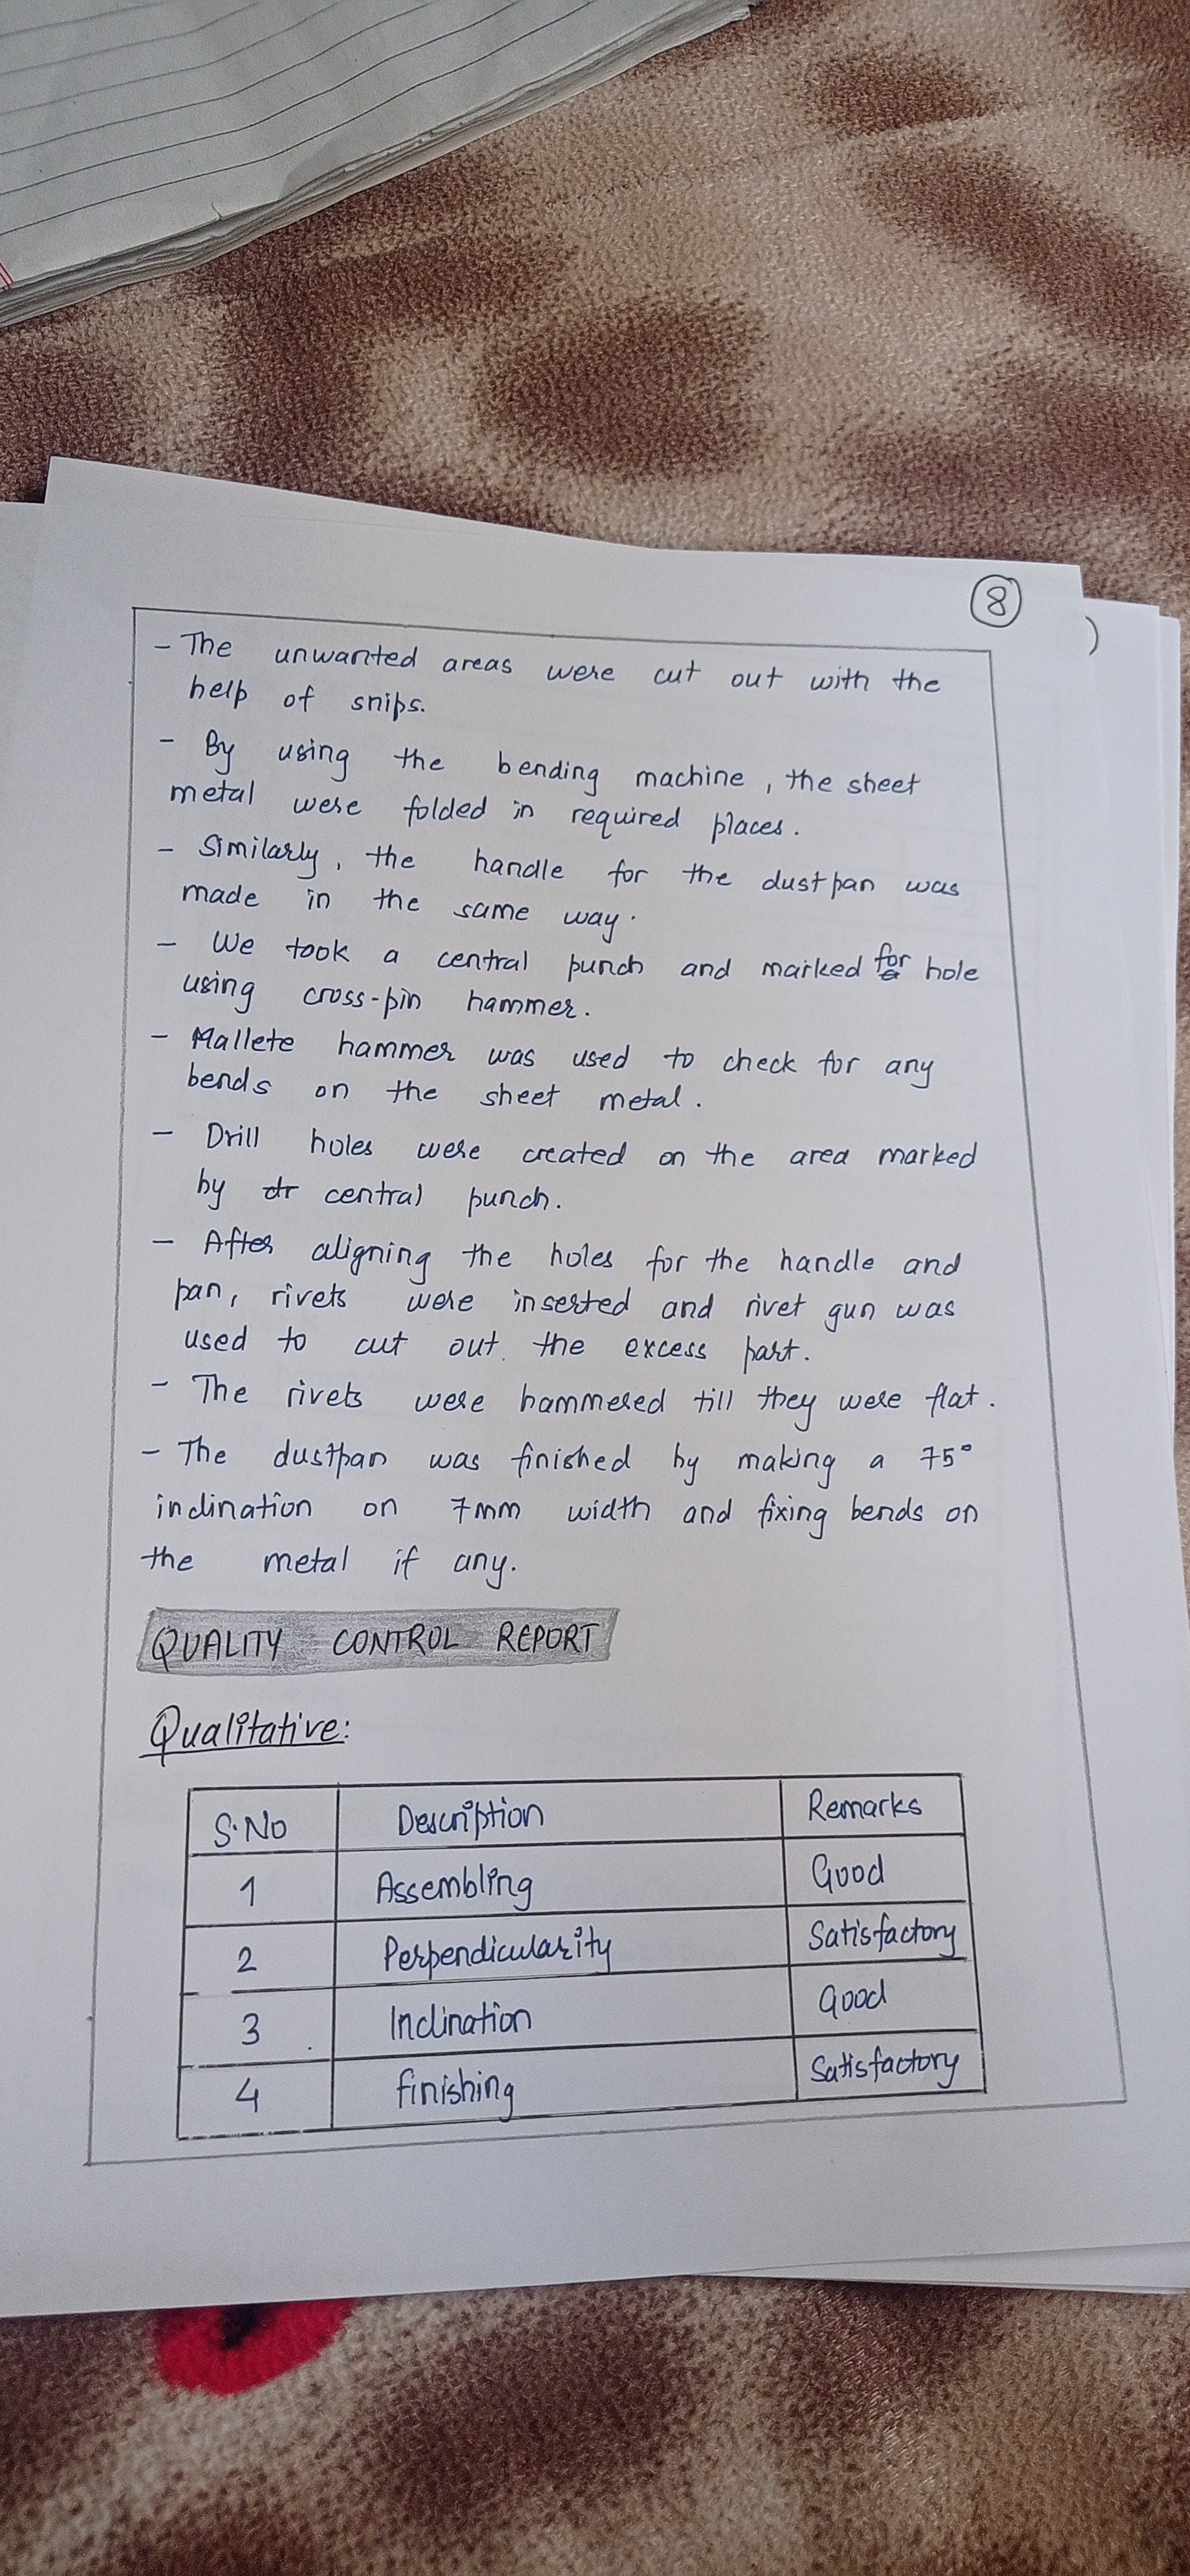 8
- The unwanted areas were cut out with the
help of snips.
- By using the bending machine, the sheet
metal were folded in required places.
- Similarly, the handle for the dustpan was
made in the same way.
- We took a central punch and marked for hole
using cross-pin hammer.
- Mallete hammer was used to check for any
bends on the sheet metal.
- Drill holes were created on the area marked
by dr central punch.
- After aligning the holes for the handle and
pan, rivets were inserted and rivet gun was
used to cut out the excess part.
- The rivets were hammered till they were flat.
- The dustpan was finished by making a 75°
inclination on 7mm width and fixing bends on
the metal if any.
QUALITY CONTROL REPORT
Qualitative:
S.No Description Remarks
1 Assembling Good
2 Perpendicularity Satisfactory
3 Inclination Good
4 finishing Satisfactory